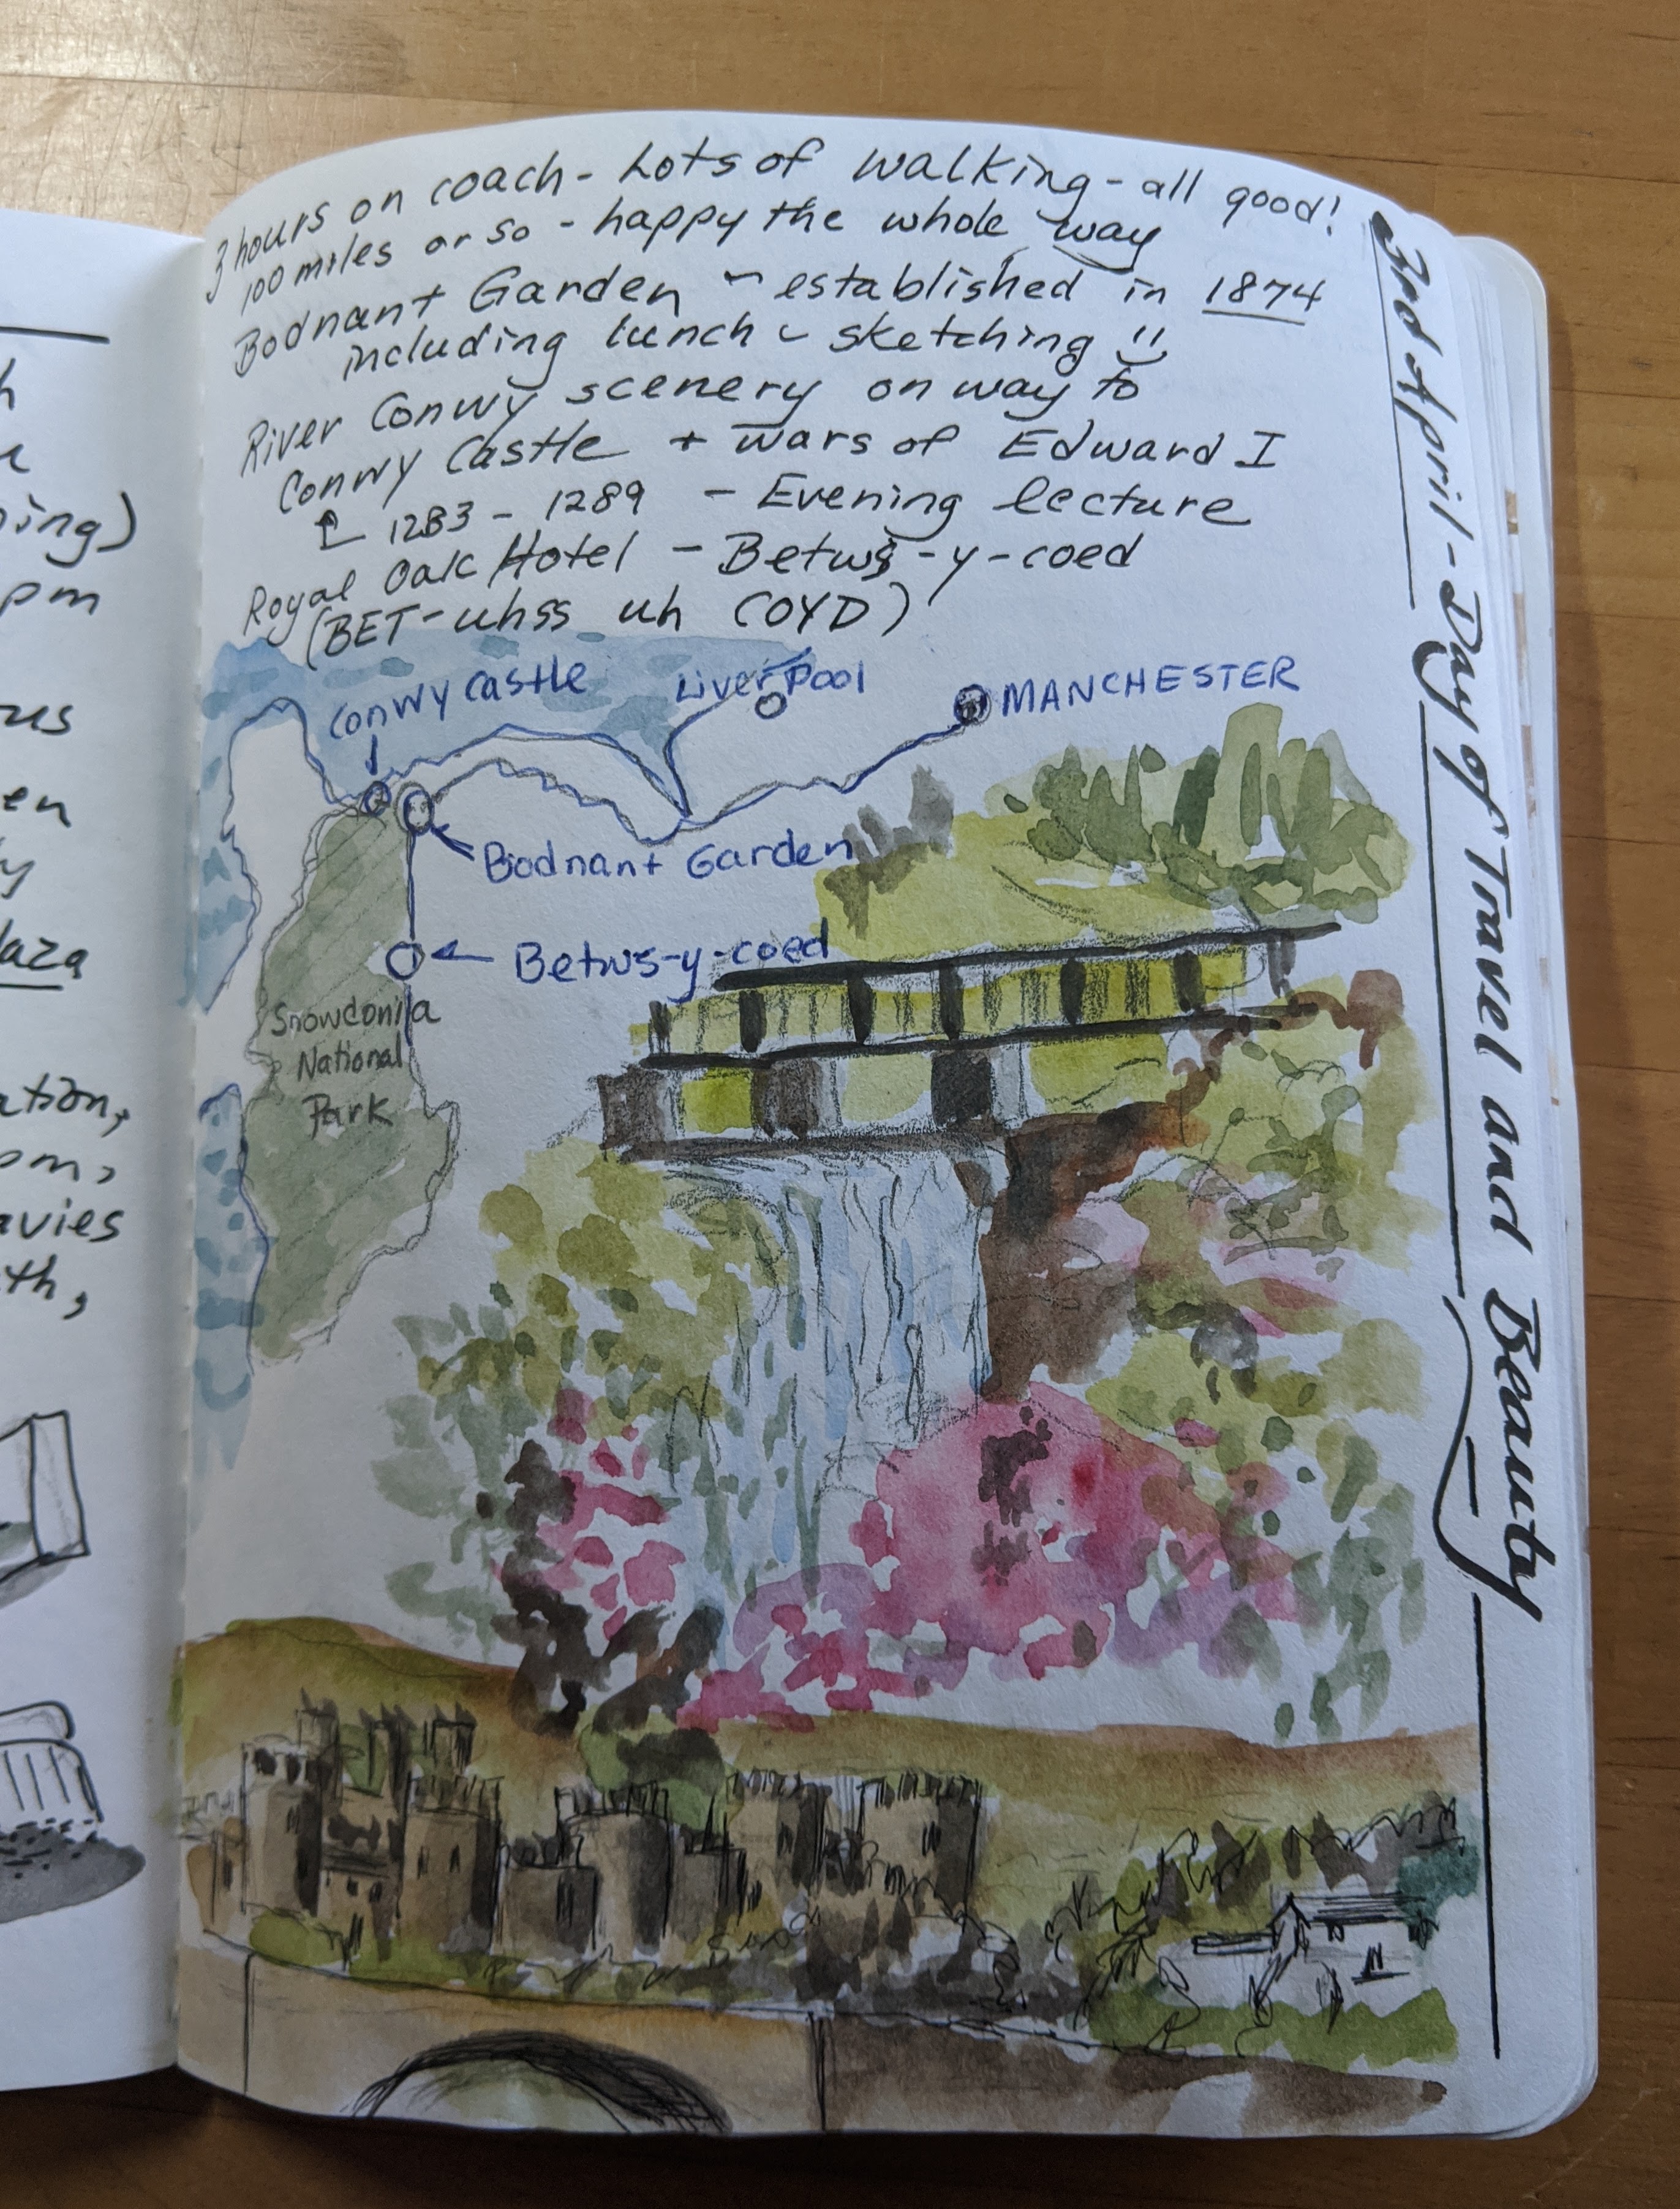 h
ing)
pm
us
en
y
laza
ation,
om,
avies
th,
3 hours on coach - Lots of walking - all good!
100 miles or so - happy the whole way
Bodnant Garden ~ established in 1874
including lunch ~ sketching
River Conwy scenery on way to
Conwy Castle + wars of Edward I
1283 - 1289 - Evening lecture
Royal Oak Hotel - Betws-y-coed
(BET-uhss uh COYD)
Conwy Castle
Liverpool
MANCHESTER
Bodnant Garden
Betws-y-coed
Snowdonia
National
Park
3rd April - Day of Travel and Beauty